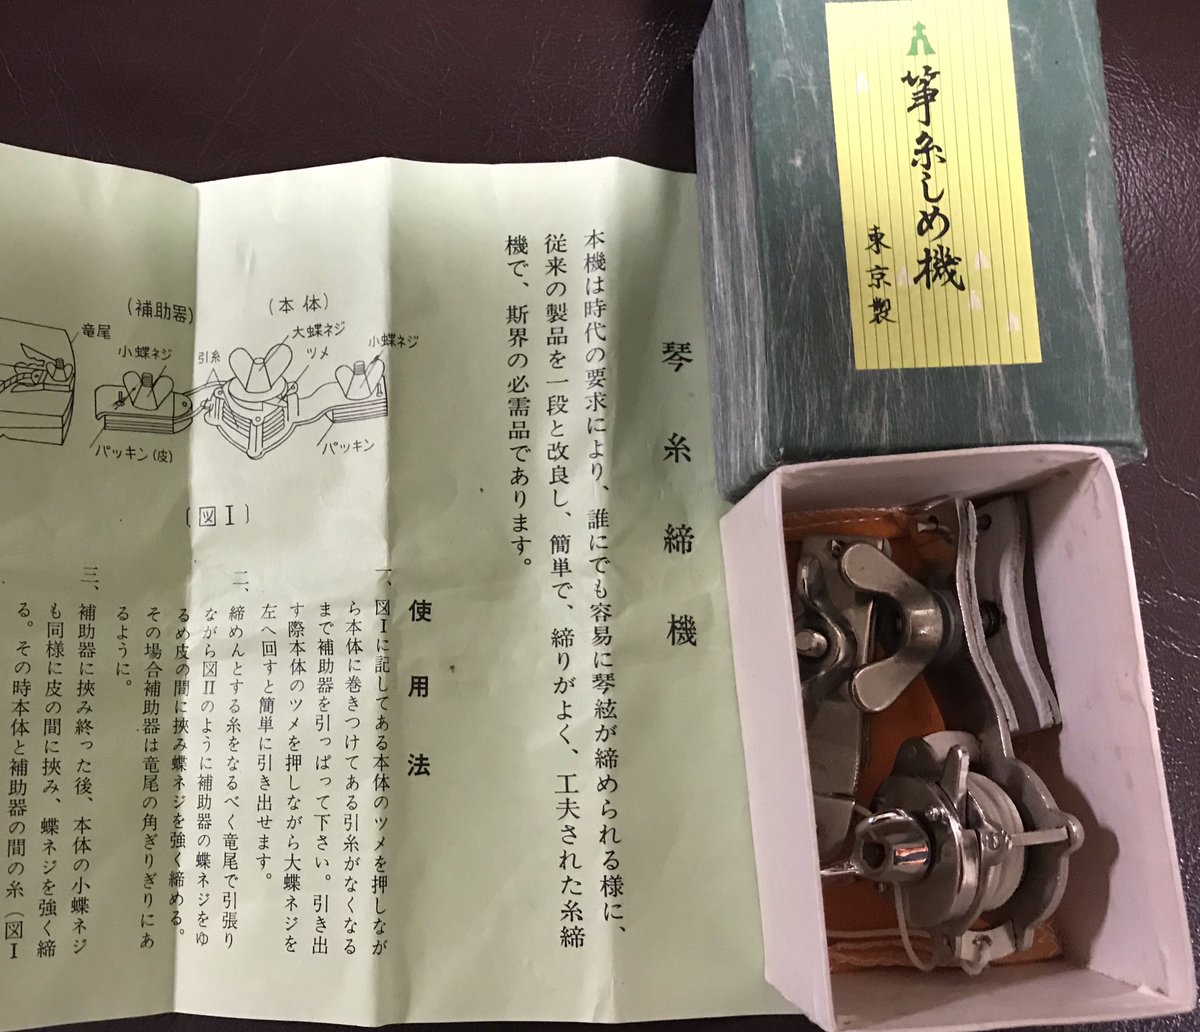 箏糸しめ機
東京製
琴糸締機
本機は時代の要求により、誰にでも容易に琴絃が締められる様に、
従来の製品を一段と改良し、簡単で、締りがよく、工夫された糸締
機で、斯界の必需品であります。
使用法
一、図Ⅰに記してある本体のツメを押しなが
ら本体に巻きつけてある引糸がなくなる
まで補助器を引っぱって下さい。引き出
す際本体のツメを押しながら大蝶ネジを
左へ回すと簡単に引き出せます。
二、締めんとする糸をなるべく竜尾で引張り
ながら図Ⅱのように補助器の蝶ネジをゆ
るめ皮の間に挟み蝶ネジを強く締める。
その場合補助器は竜尾の角ぎりぎりにあ
るように。
三、補助器に挟み終った後、本体の小蝶ネジ
も同様に皮の間に挟み、蝶ネジを強く締
る。その時本体と補助器の間の糸（図Ⅰ
（本体）
大蝶ネジ
小蝶ネジ
ツメ
引糸
パッキン
（補助器）
小蝶ネジ
パッキン（皮）
竜尾
〔図Ⅰ〕